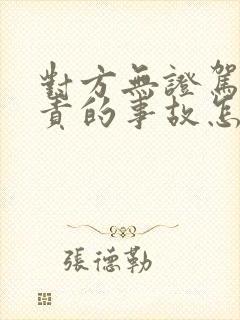 對方無證駕
責的事故怎
張德勒